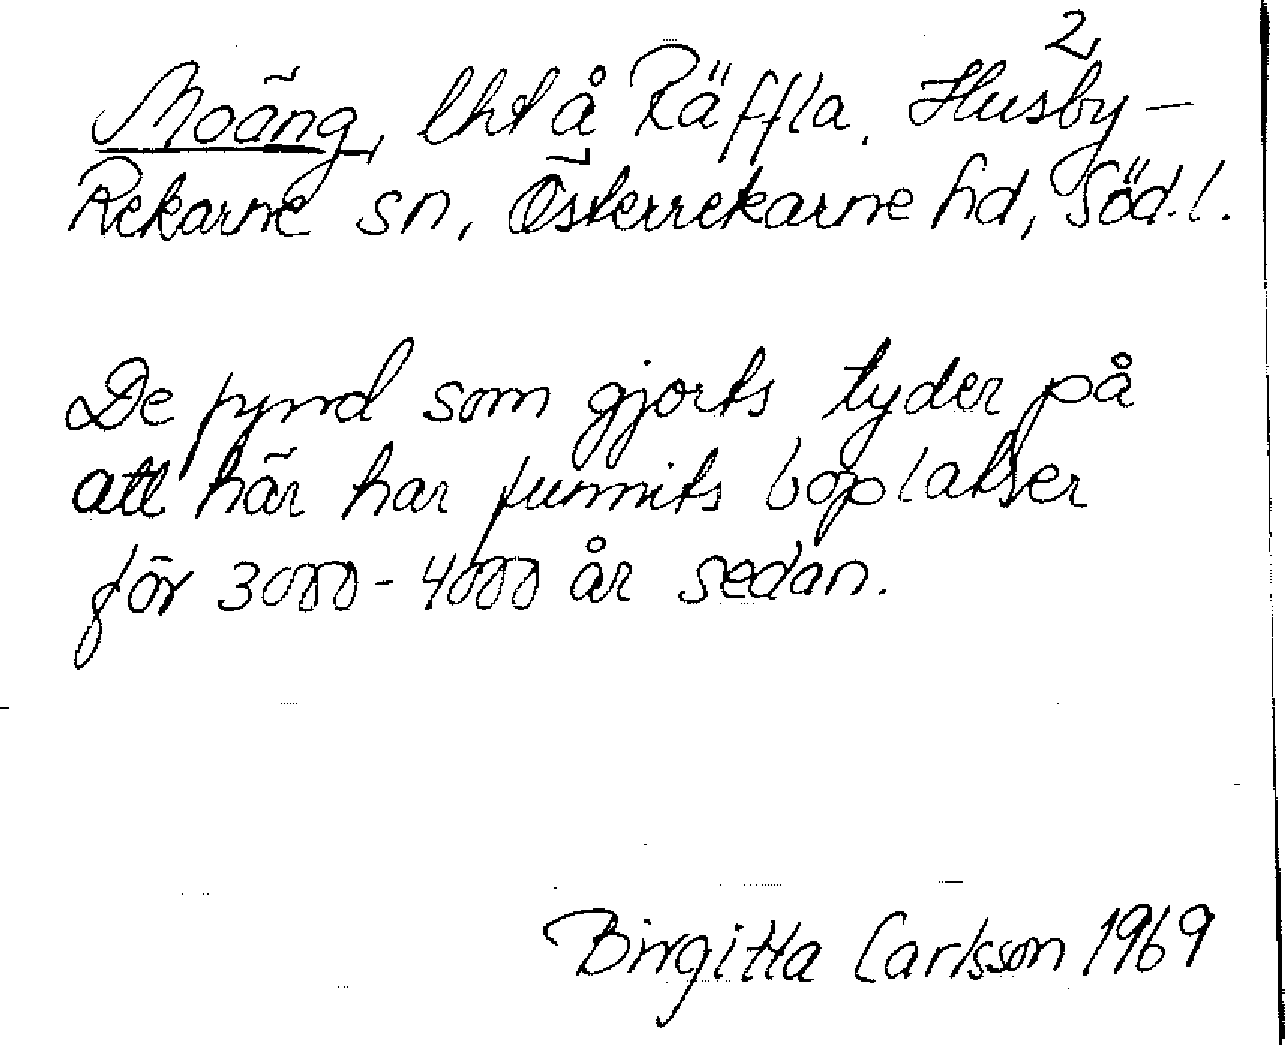 2
Moäng, lht å Räffla. Husby-
Rekarne sn, Österrekarne hd, Söd.l.
De fynd som gjorts tyder på
att här har funnits boplatser
för 3000-4000 år sedan.
Birgitta Carlsson 1969